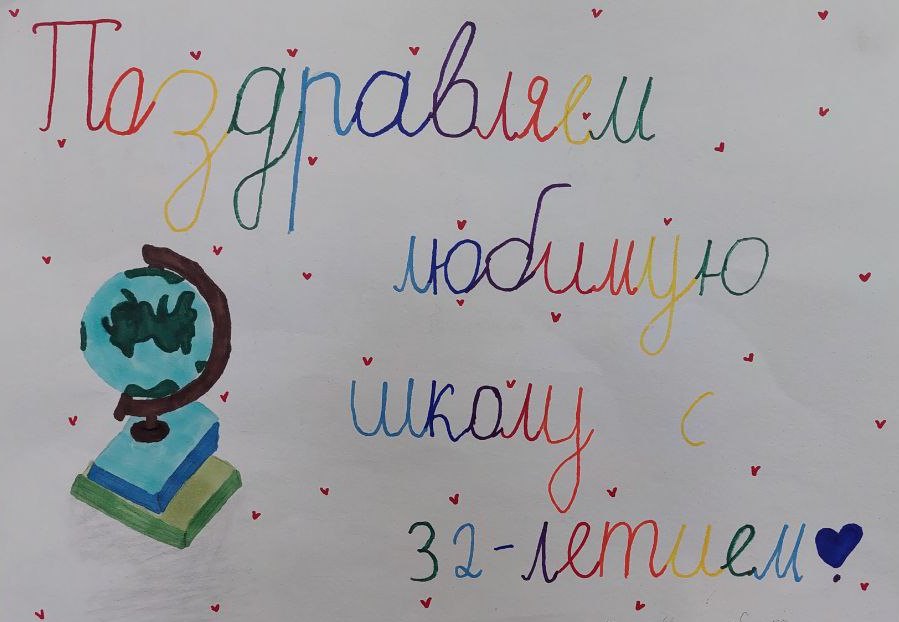 Поздравляем
любимую
школу с
32-летием!